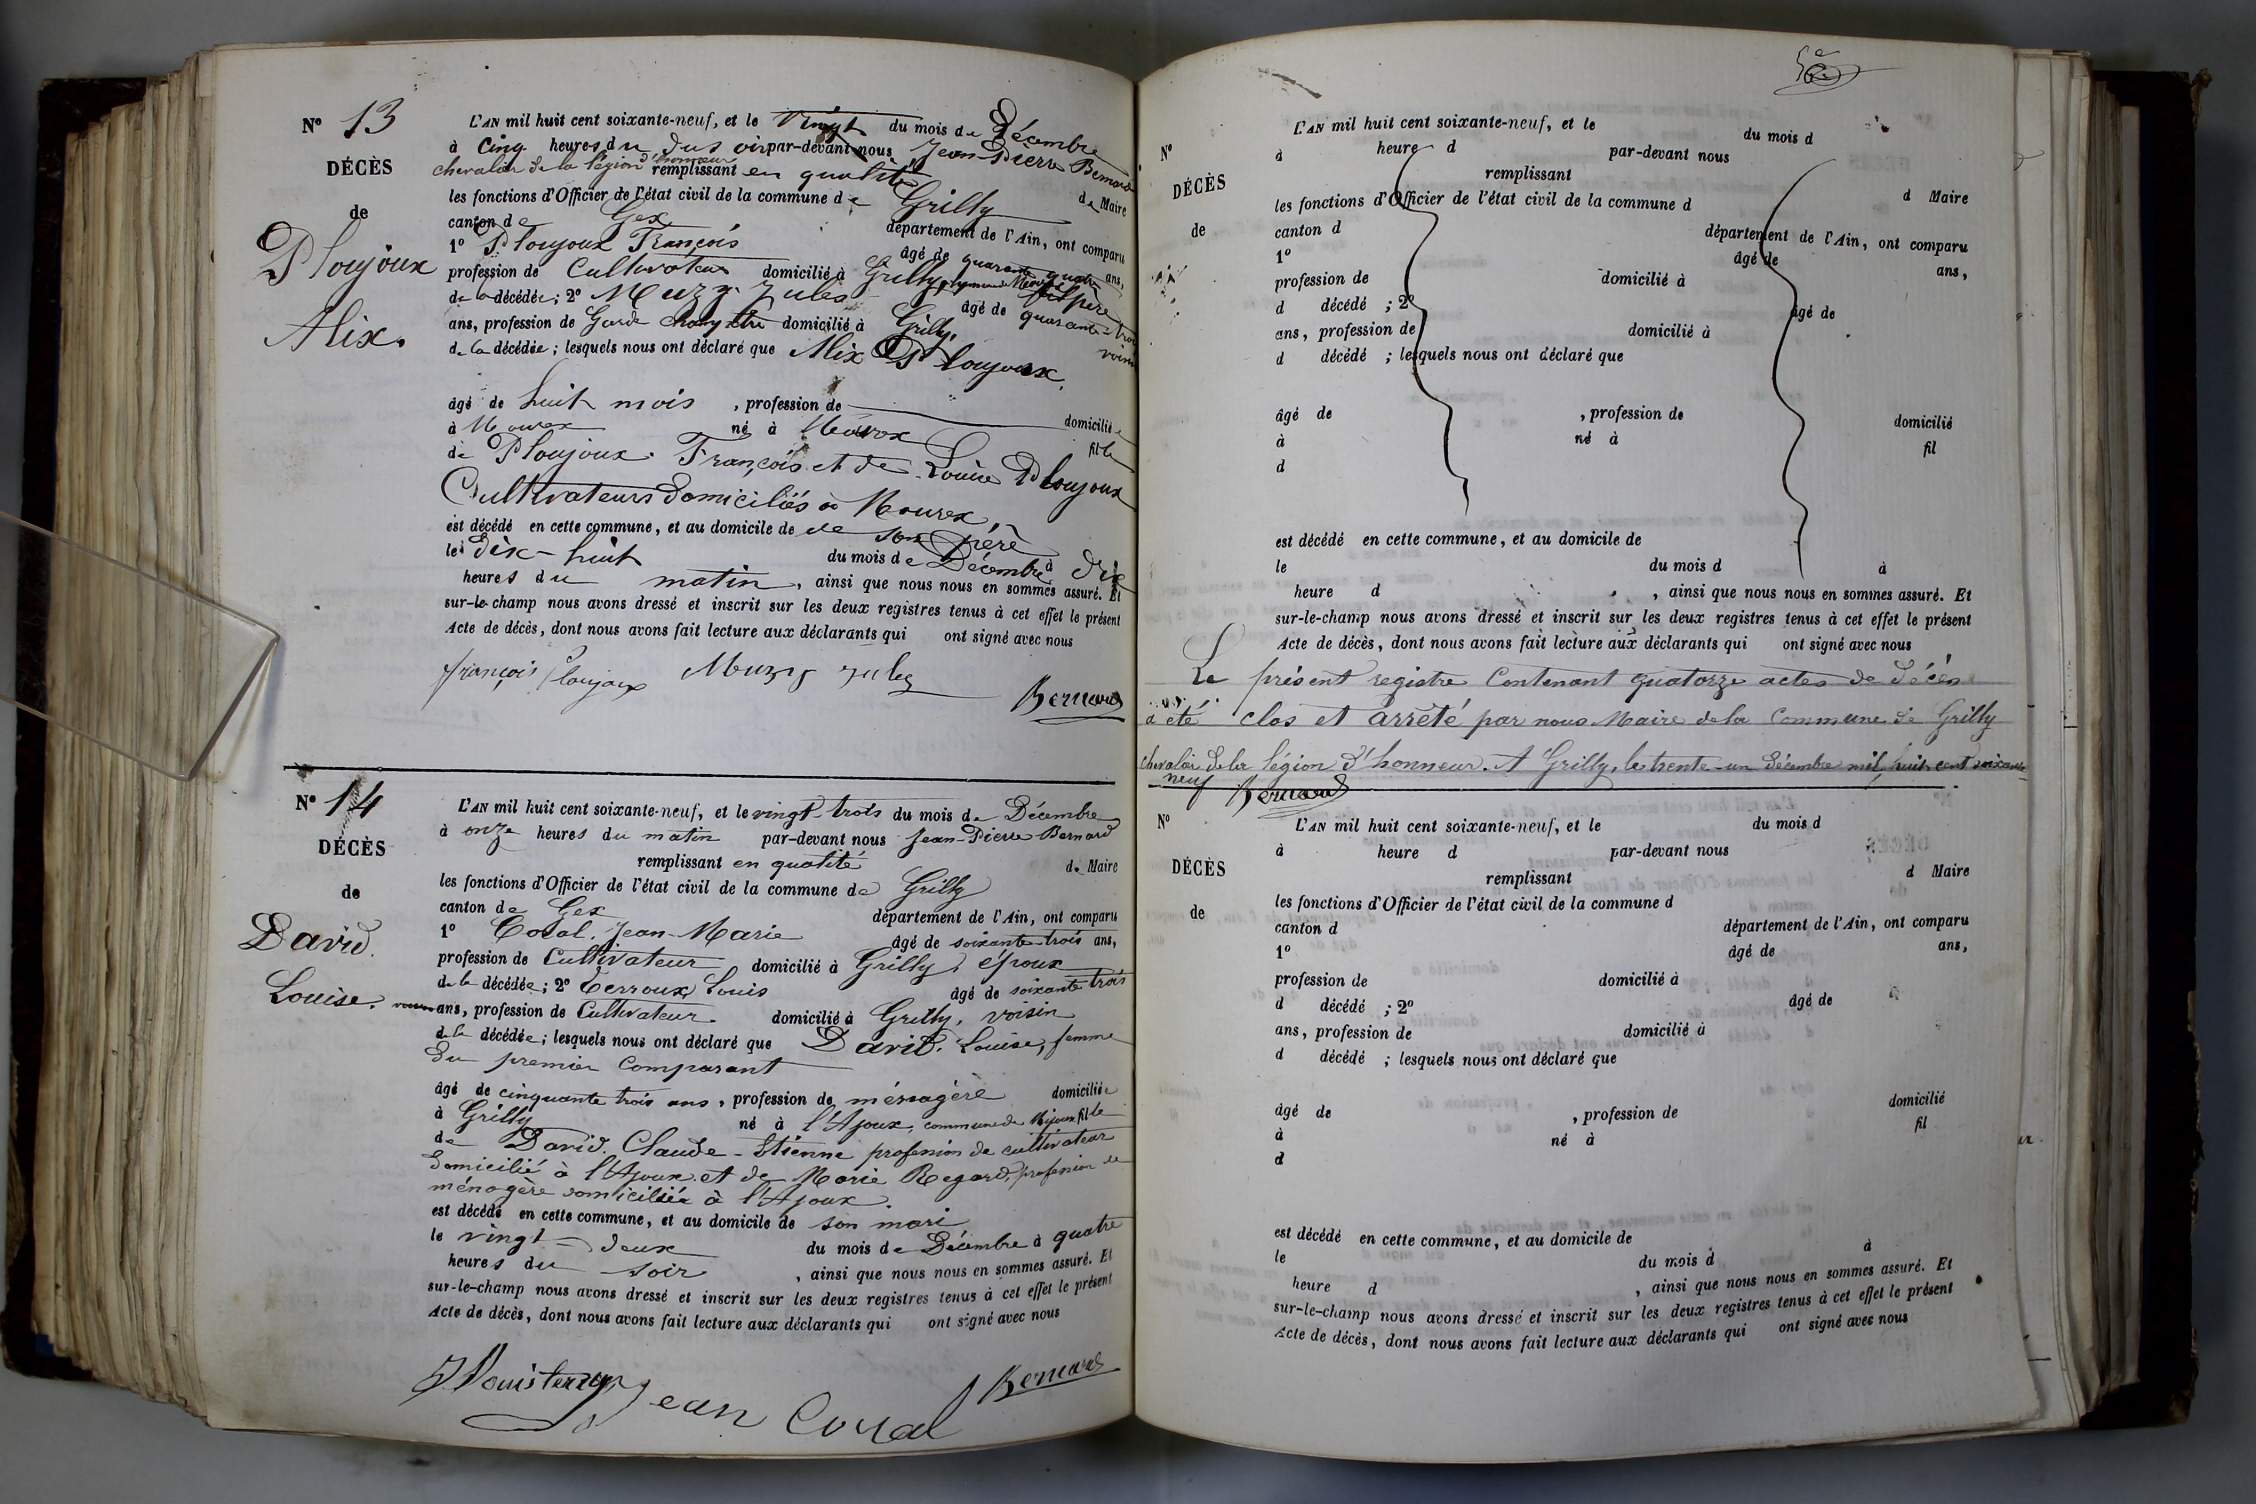 Nº 13
DÉCÈS
de
Ploujoux
Alix.
L'AN mil huit cent soixante-neuf, et le vingt du mois de Décembre
à Cinq heures du du soir par-devant nous Jean-Pierre Bernard
chevalier de la légion d'honneur remplissant en qualité de Maire
les fonctions d'Officier de l'état civil de la commune de Grilly
canton de Gex département de l'Ain, ont comparu
1º Ploujoux François âgé de quarante quatre ans,
profession de Cultivateur domicilié à Grilly, père
de la décédée; 2º Muzy Jules âgé de quarante-trois
ans, profession de Garde champêtre domicilié à Grilly, voisin
de la décédée; lesquels nous ont déclaré que Alix Ploujoux,
âgé de huit mois, profession de domiciliée
à Mourex né à Mourex fille
de Ploujoux François et de Louise Ploujoux
Cultivateurs domiciliés à Mourex,
est décédé en cette commune, et au domicile de de son père
le dix-huit du mois de Décembre à dix
heures du matin, ainsi que nous nous en sommes assuré. Et
sur-le-champ nous avons dressé et inscrit sur les deux registres tenus à cet effet le présent
Acte de décès, dont nous avons fait lecture aux déclarants qui ont signé avec nous
françois Ploujoux Muzy jules
Bernard
Nº 14
DÉCÈS
de
David.
Louise.
L'AN mil huit cent soixante-neuf, et le vingt-trois du mois de Décembre
à onze heures du matin par-devant nous Jean-Pierre Bernard
remplissant en qualité de Maire
les fonctions d'Officier de l'état civil de la commune de Grilly
canton de Gex département de l'Ain, ont comparu
1º Jean-Marie âgé de soixante trois ans,
profession de Cultivateur domicilié à Grilly, époux
de la décédée; 2º Terroux Louis âgé de soixante trois
ans, profession de Cultivateur domicilié à Grilly, voisin
de la décédée; lesquels nous ont déclaré que David. Louise, femme
du premier Comparant
âgé de cinquante trois ans, profession de ménagère domiciliée
à Grilly né à l'Ajoux, commune de Mijoux fille
de David. Claude-Etienne profession de cultivateur
domicilié à l'Ajoux et de Marie Regard, profession de
ménagère domiciliée à l'Ajoux.
est décédé en cette commune, et au domicile de son mari
le vingt-deux du mois de Décembre à quatre
heures du soir, ainsi que nous nous en sommes assuré. Et
sur-le-champ nous avons dressé et inscrit sur les deux registres tenus à cet effet le présent
Acte de décès, dont nous avons fait lecture aux déclarants qui ont signé avec nous
Bernard
Jean
Nº
DÉCÈS
de
L'AN mil huit cent soixante-neuf, et le du mois d
à heure d par-devant nous
remplissant d Maire
les fonctions d'Officier de l'état civil de la commune d
canton d département de l'Ain, ont comparu
1º âgé de ans,
profession de domicilié à
d décédé ; 2º âgé de
ans, profession de domicilié à
d décédé ; lesquels nous ont déclaré que
âgé de , profession de domicilié
à né à fil
d
est décédé en cette commune, et au domicile de
le du mois d à
heure d , ainsi que nous nous en sommes assuré. Et
sur-le-champ nous avons dressé et inscrit sur les deux registres tenus à cet effet le présent
Acte de décès, dont nous avons fait lecture aux déclarants qui ont signé avec nous
Le présent registre Contenant quatorze actes de décès
a été clos et arrêté par nous Maire de la Commune de Grilly
chevalier de la légion d'honneur. A Grilly, le trente-un Décembre mil huit cent soixante
neuf Bernard
Nº
DÉCÈS
de
L'AN mil huit cent soixante-neuf, et le du mois d
à heure d par-devant nous
remplissant d Maire
les fonctions d'Officier de l'état civil de la commune d
canton d département de l'Ain, ont comparu
1º âgé de ans,
profession de domicilié à
d décédé ; 2º âgé de
ans, profession de domicilié à
d décédé ; lesquels nous ont déclaré que
âgé de , profession de domicilié
à né à fil
d
est décédé en cette commune, et au domicile de
le du mois d à
heure d , ainsi que nous nous en sommes assuré. Et
sur-le-champ nous avons dressé et inscrit sur les deux registres tenus à cet effet le présent
Acte de décès, dont nous avons fait lecture aux déclarants qui ont signé avec nous